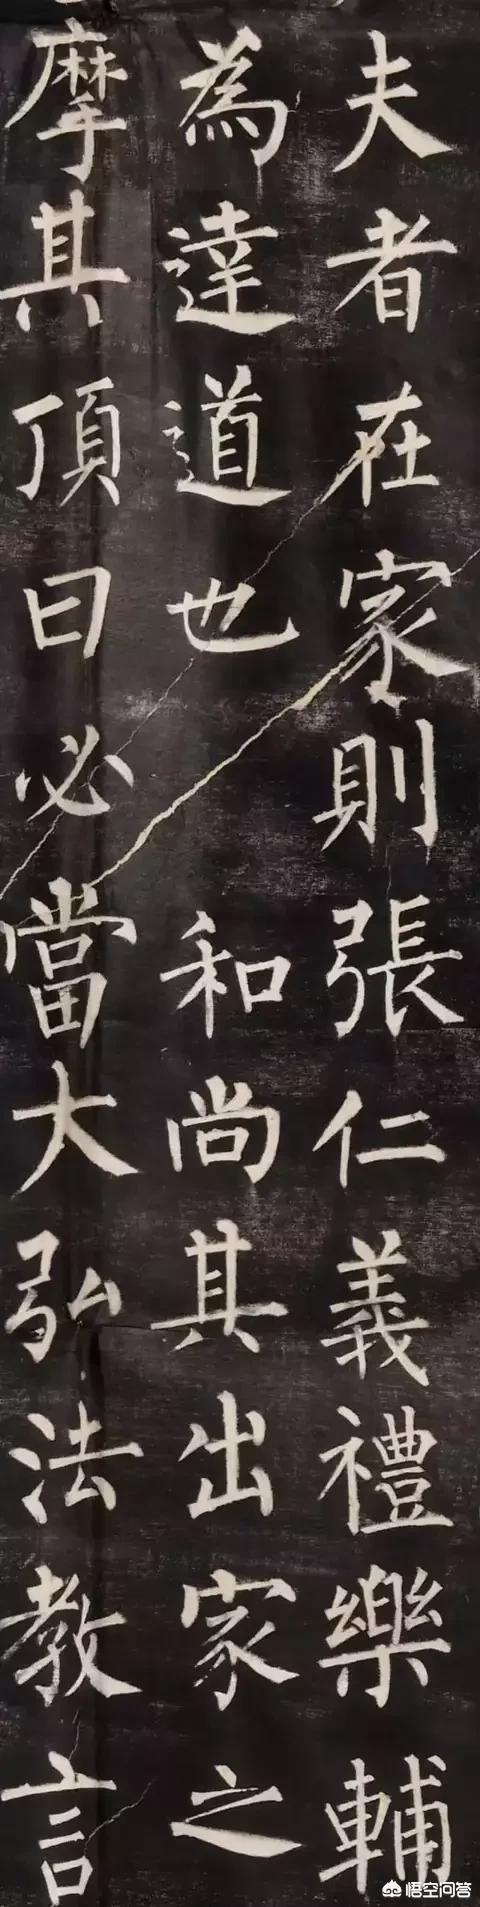 夫者在家則張仁義禮樂輔
為達道也 和尚其出家之
摩其頂曰必當大弘法教言
悟空问答